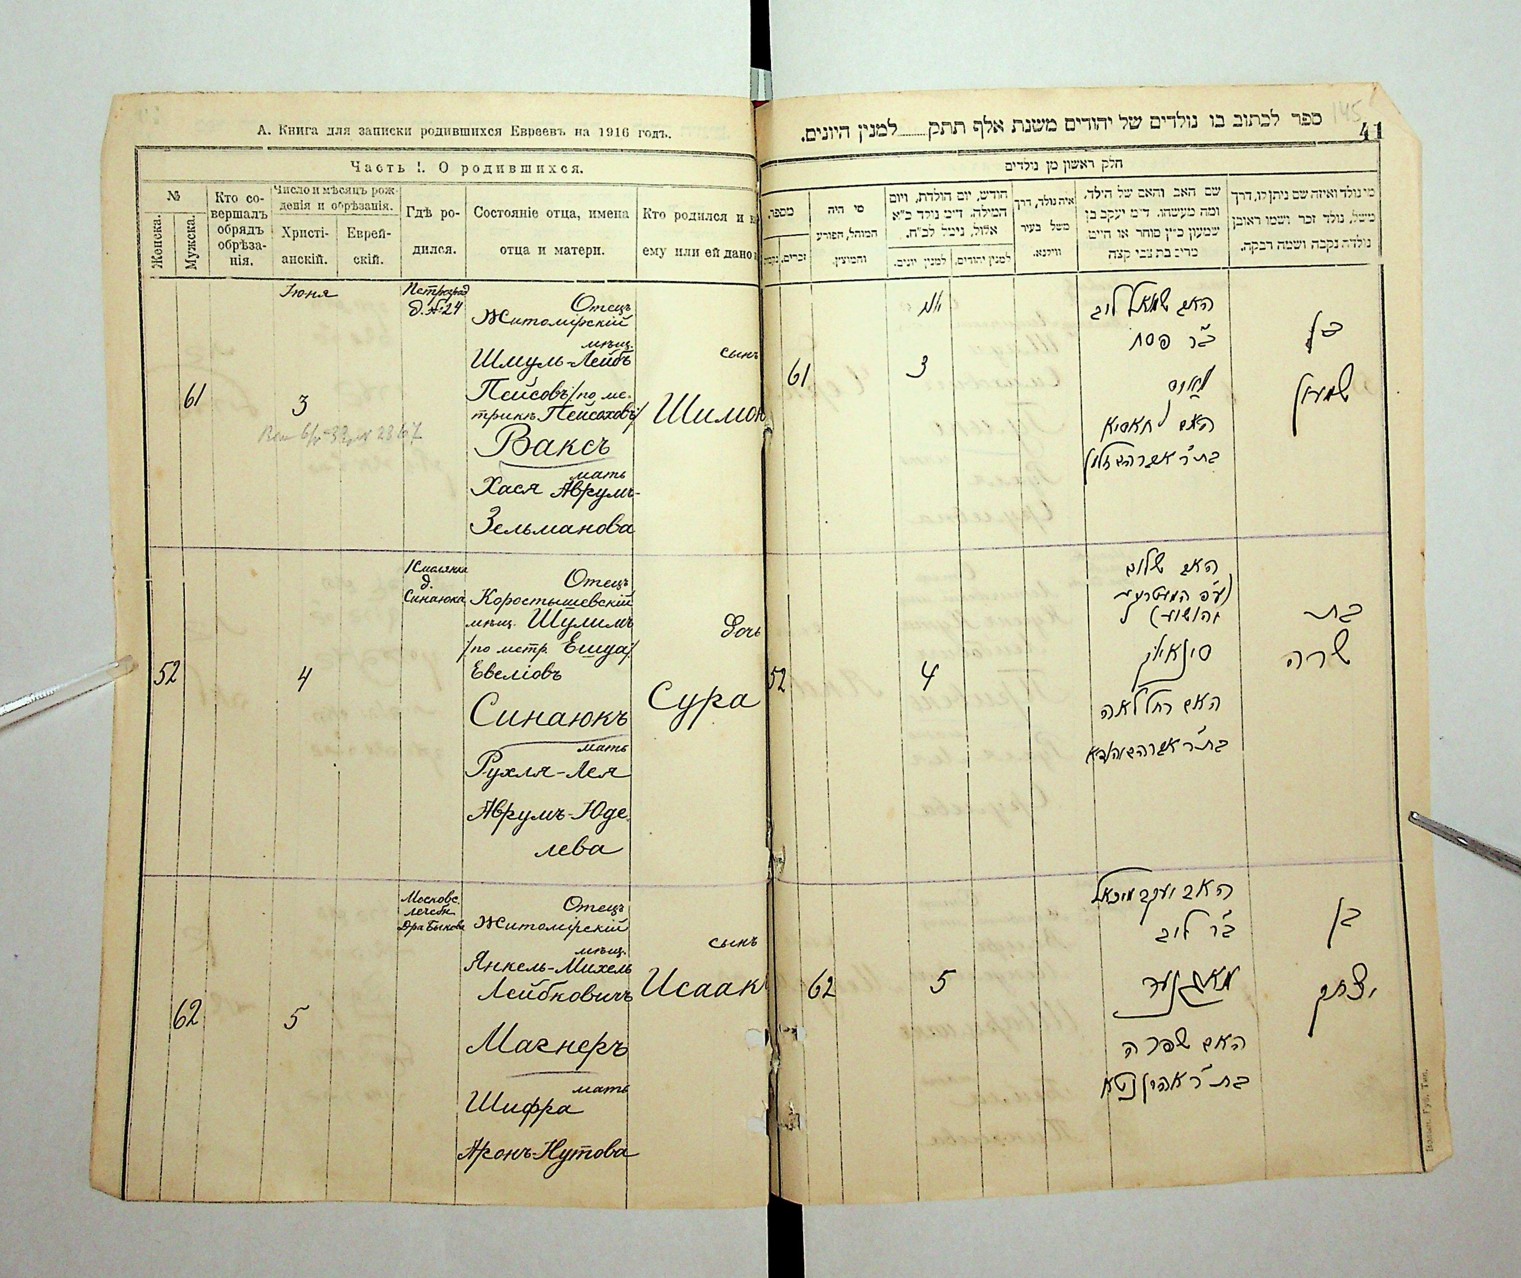 А. Книга для записки родившихся Евреевъ на 1916 годъ.
Часть I. О родившихся.
№
Женска.
Мужска.
Кто со-
вершалъ
обрядъ
обрѣза-
нія.
Число и мѣсяцъ рож-
денія и обрѣзанія.
Христі-
анскій.
Еврей-
скій.
Гдѣ ро-
дился.
Состояніе отца, имена
отца и матери.
Кто родился и
ему или ей дано
61
Іюня
3
Петроград
д. № 24
Отецъ
Житомірскій
мѣщ.
Шмуль-Лейбъ
Пейсовъ /по ме-
трикѣ Пейсаховъ/
Ваксъ
мать
Хася Аврумъ-
Зельманова
сынъ
Шимон
52
4
Смолянка
д.
Синаюка
Отецъ
Коростышевскій
мѣщ. Шулимъ
/по метр. Ешуа/
Евеліовъ
Синаюкъ
мать
Рухля-Лея
Аврумъ-Юде
лева
Дочь
Сура
62
5
Московс.
лечебн.
Дра Быкова
Отецъ
Житомірскій
мѣщ.
Янкель-Михель
Лейбковичъ
Магнеръ
мать
Шифра
Аронъ-Нутова
сынъ
Исаакъ
145
41
ספר לכתוב בו נולדים של יהודים משנת אלף תתק למנין היונים.
חלק ראשון מן נולדים
מספר.
זכרים.
מי היה
המוהל, הפורע
והמוצץ.
חודש, יום הולדת, ויום
המילה. ד״מ נולד כ״א
אלול, נימל לכ״ח.
למנין יונים.
למנין יהודים.
איה נולד, דרך
משל בעיר
ווילנא.
שם האב והאם של הילד,
ומה מעשהו. ד״מ יעקב בן
שמעון כ״ץ סוחר או חייט
מרים בת צבי קצה
מי נולד ואיזה שם ניתן לו, דרך
משל, נולד זכר ושמו ראובן
נולדה נקבה ושמה רבקה.
61
3
האב שמואל ליב
ב״ר פסח
וואקס
האם חאסיא
בן
שמעון
52
4
האב שלום
סינאיוק
האם רחל לאה
בת
שרה
62
5
האב יעקב מיכאל
ב״ר ליב
מאגנער
האם שפרה
בן
יצחק
Волын. Губ. Тип.